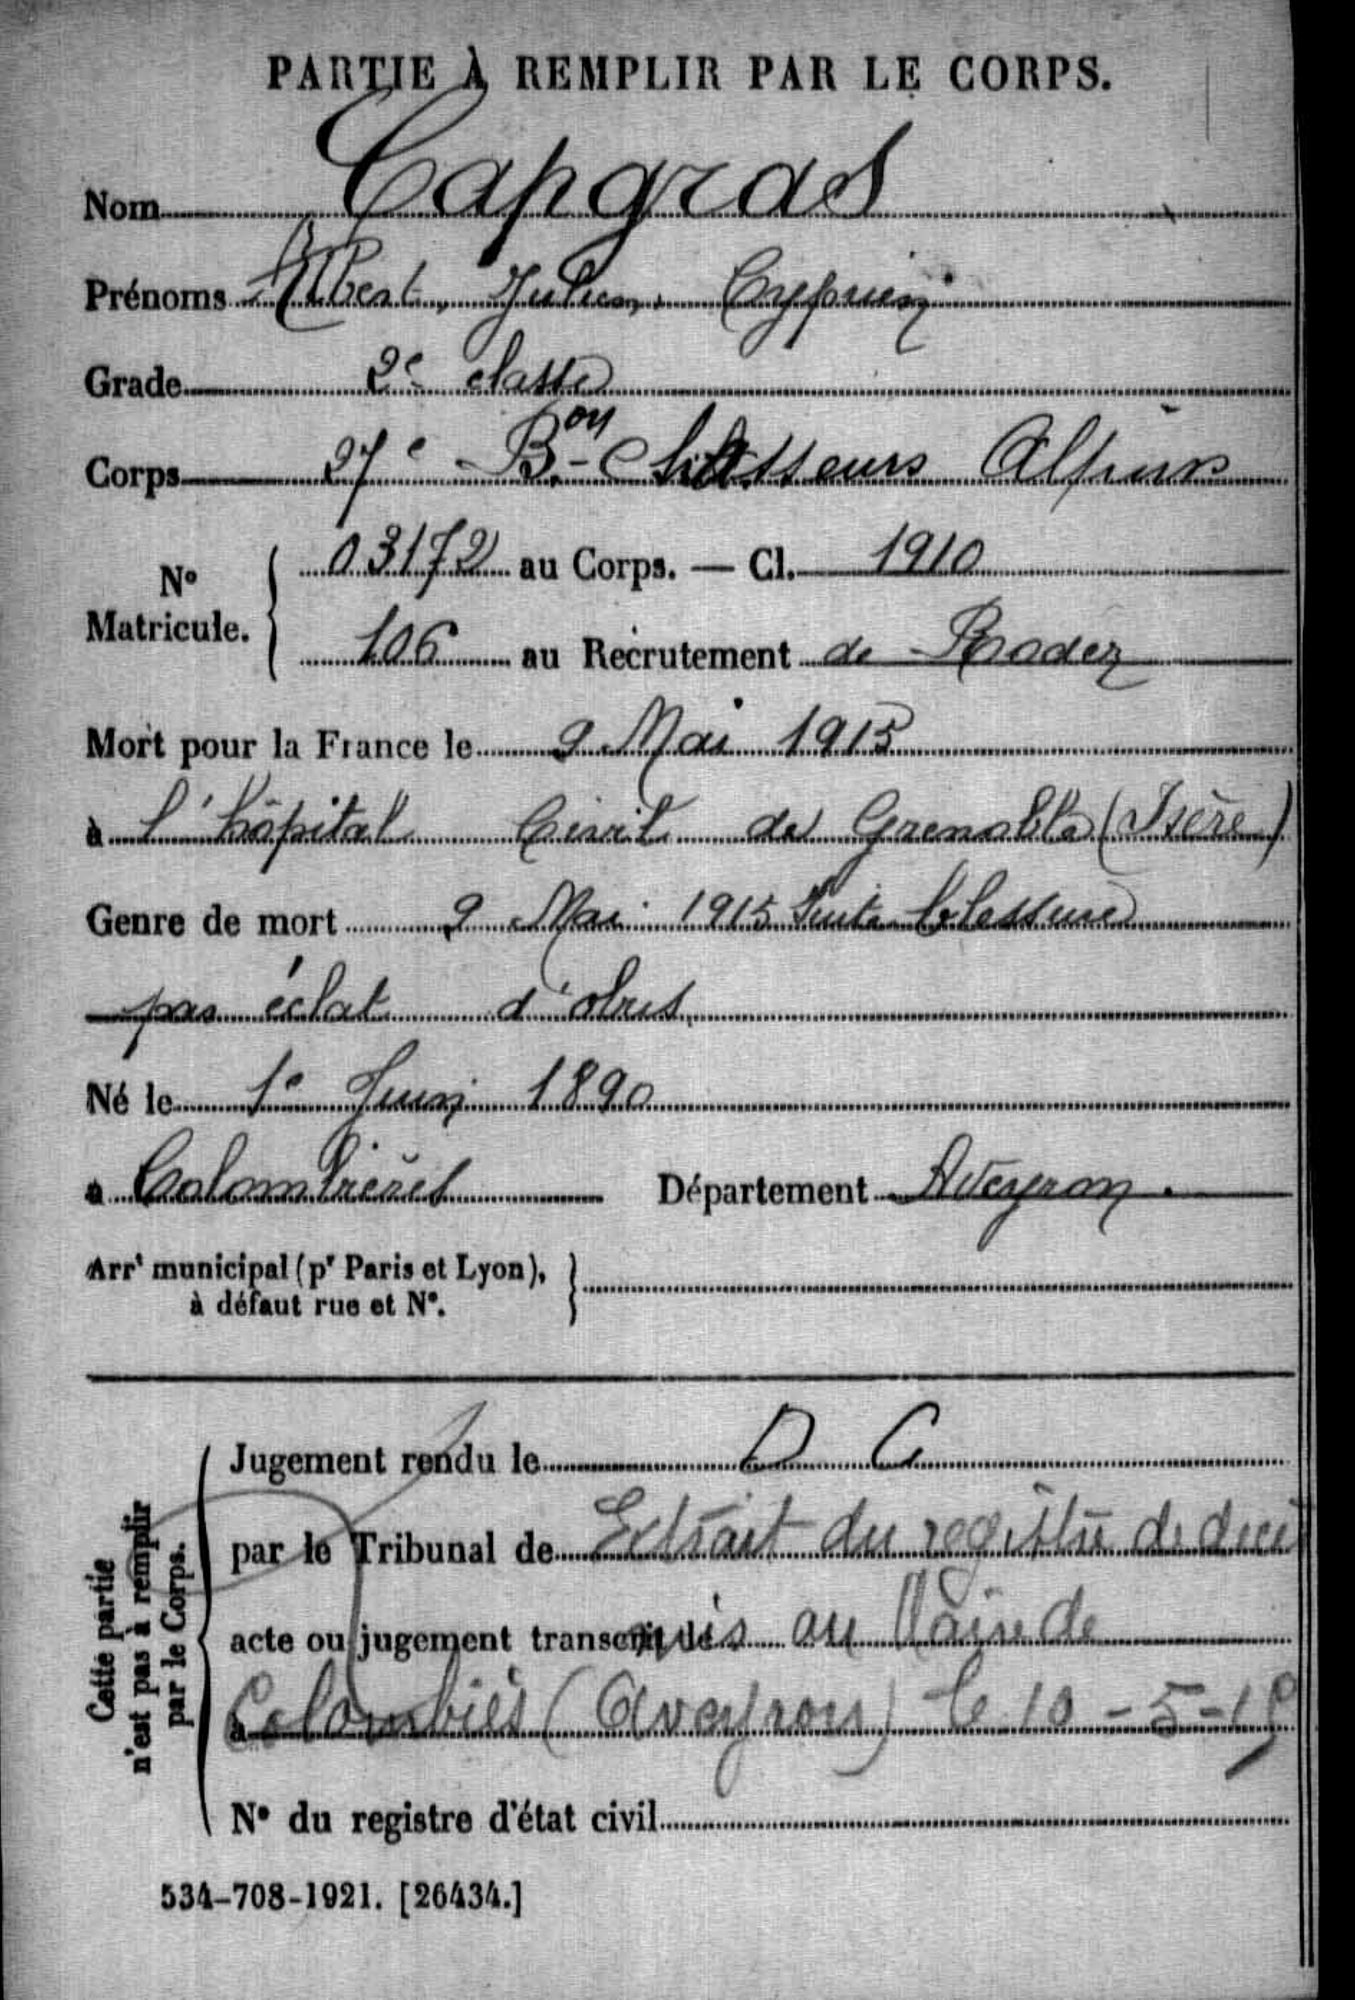 PARTIE À REMPLIR PAR LE CORPS.
Nom Capgras
Prénoms Albert, Julien, Cyprien
Grade 2e classe
Corps 27e Bon Chasseurs Alpins
N° Matricule. 03172 au Corps. — Cl. 1910
106 au Recrutement de Rodez
Mort pour la France le 9 Mai 1915
à l'hôpital Civil de Grenoble (Isère)
Genre de mort 9 Mai 1915 Suite blessure
par éclat d'obus
Né le 1e Juin 1890
à Colombières Département Aveyron.
Arrt municipal (pr Paris et Lyon),
à défaut rue et N°.
Cette partie
n'est pas à remplir
par le Corps.
Jugement rendu le D C
par le Tribunal de Extrait du registre de
acte ou jugement transcrit le au Maire de
à Colombiès (Aveyron) le 10-5-15
N° du registre d'état civil
534-708-1921. [26434.]